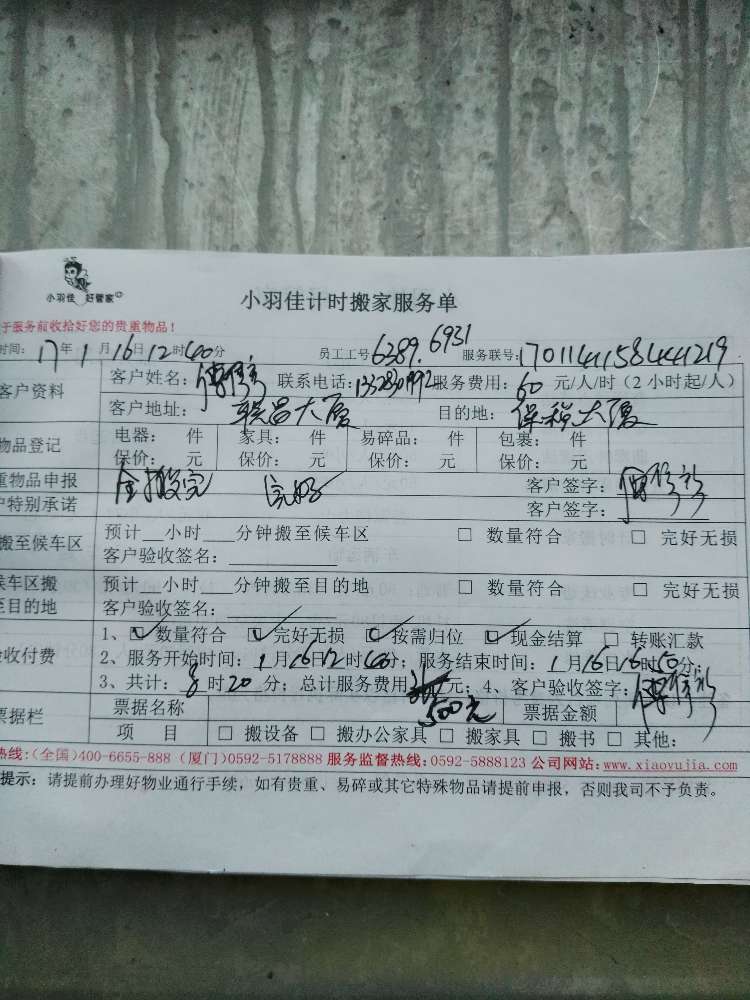 小羽佳 好管家
小羽佳计时搬家服务单
于服务前收拾好您的贵重物品！
时间：17年1月16日12时40分 员工工号6389.6931 服务联号：17011411584441219
客户资料 客户姓名： 联系电话： 服务费用：60元/人/时（2小时起/人）
客户地址：联昌大厦 目的地：保税大厦
物品登记 电器： 件 家具： 件 易碎品： 件 包裹： 件
保价： 元 保价： 元 保价： 元 保价： 元
重物品申报 全搬完 完好 客户签字：
户特别承诺 客户签字：
搬至候车区 预计__小时___分钟搬至候车区 □ 数量符合 □ 完好无损
客户验收签名：
候车区搬 预计__小时___分钟搬至目的地 □ 数量符合 □ 完好无损
至目的地 客户验收签名：
验收付费 1、☑数量符合 ☑完好无损 ☑按需归位 ☑现金结算 □ 转账汇款
2、服务开始时间：1月16日12时40分；服务结束时间：1月16日16时50分；
3、共计：8时20分；总计服务费用 元；4、客户验收签字：
500元
票据栏 票据名称 票据金额
项 目 □ 搬设备 □ 搬办公家具 □ 搬家具 □ 搬书 □ 其他：
热线：(全国)400-6655-888 (厦门)0592-5178888 服务监督热线：0592-5888123 公司网站：www.xiaoyujia.com
提示：请提前办理好物业通行手续，如有贵重、易碎或其它特殊物品请提前申报，否则我司不予负责。